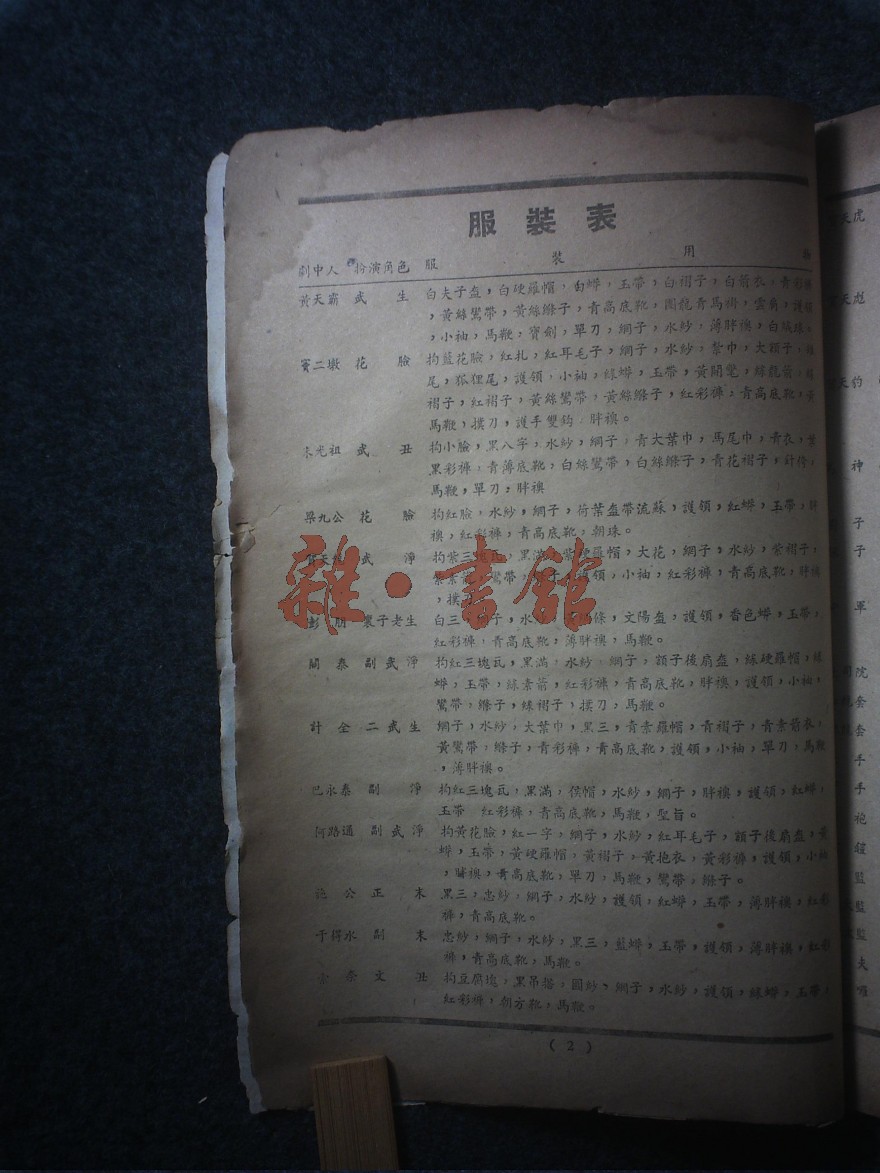 服裝表
劇中人 扮演角色 服裝用
黃天霸 武生 白夫子盔,白硬羅帽,白蟒,玉帶,白褶子,白箭衣,青彩褲
,黃絲鸞帶,黃絲縧子,青高底靴,團龍青馬褂,雲肩,護領
,小袖,馬鞭,寶劍,單刀,網子,水紗,薄胖襖,白絨球。
竇二墩 花臉 拘藍花臉,紅扎,紅耳毛子,網子,水紗,紮巾,大額子,
尾,狐狸尾,護領,小袖,綠蟒,玉帶,黃開氅,綠龍箭,
褶子,紅褶子,黃絲鸞帶,黃絲縧子,紅彩褲,青高底靴,黃
馬鞭,撲刀,護手雙鈎,胖襖。
朱光祖 武丑 拘小臉,黑八字,水紗,網子,青大葉巾,馬尾巾,青衣,
黑彩褲,青薄底靴,白絲鸞帶,白絲縧子,青花褶子,
馬鞭,單刀,胖襖
梁九公 花臉 拘紅臉,水紗,網子,荷葉盔帶流蘇,護領,紅蟒,玉帶,胖
襖,紅彩褲,青高底靴,朝珠。
武淨 拘紫三塊瓦,黑滿,紫硬羅帽,大花,網子,水紗,紫褶子,
鸞帶,護領,小袖,紅彩褲,青高底靴,胖襖
彭朋 裏子老生 白三,網子,水紗,文陽盔,護領,香色蟒,玉帶,
紅彩褲,青高底靴,薄胖襖,馬鞭。
關泰 副武淨 拘紅三塊瓦,黑滿,水紗,網子,額子後扇盔,綠硬羅帽,綠
蟒,玉帶,綠素箭,紅彩褲,青高底靴,胖襖,護領,小袖,
鸞帶,縧子,綠褶子,撲刀,馬鞭。
計全 二武生 網子,水紗,大葉巾,黑三,青素羅帽,青褶子,青素箭衣,
黃鸞帶,縧子,青彩褲,青高底靴,護領,小袖,單刀,馬鞭
,薄胖襖。
巴永泰 副淨 拘紅三塊瓦,黑滿,侯帽,水紗,網子,胖襖,護領,紅蟒,
玉帶 紅彩褲,青高底靴,馬鞭,聖旨。
何路通 副武淨 拘黃花臉,紅一字,網子,水紗,紅耳毛子,額子後扇盔,黃
蟒,玉帶,黃硬羅帽,黃褶子,黃抱衣,黃彩褲,護領,小袖
,胖襖,青高底靴,單刀,馬鞭,鸞帶,縧子。
施公 正末 黑三,忠紗,網子,水紗,護領,紅蟒,玉帶,薄胖襖,紅彩
褲,青高底靴。
于得水 副末 忠紗,網子,水紗,黑三,藍蟒,玉帶,護領,薄胖襖,紅彩
褲,青高底靴,馬鞭。
金奈文 丑 拘豆腐塊,黑吊搭,圓紗,網子,水紗,護領,綠蟒,玉帶,
紅彩褲,朝方靴,馬鞭。
(2)
雜·書館
天虎
天彪
天豹
神
子
子
軍
院
套
套
手
手
袍
監
監
監
夫